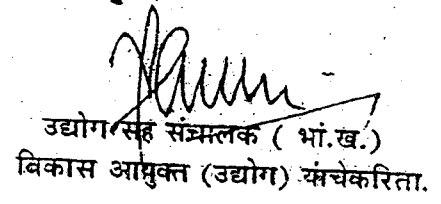 उद्योग सह संचालक ( भां.ख.)
विकास आयुक्त (उद्योग) यांचेकरिता.